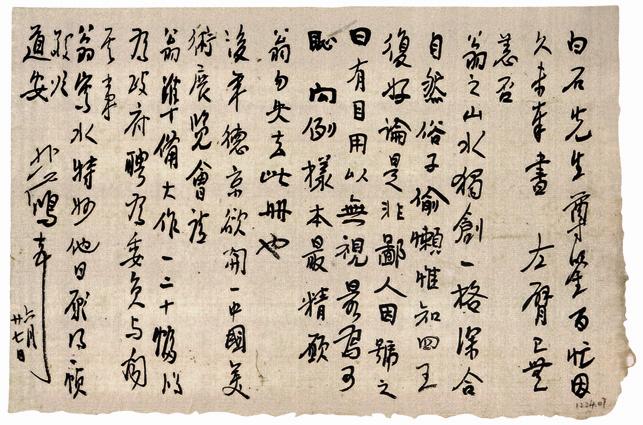 白石先生尊鑒百忙因
久未奉書 左臂已無
恙否
翁之山水獨創一格深合
自然俗子偷懶惟知四王
復好論是非鄙人因號之
曰有目用以無視最為可
恥 向例樣本最精願
翁勿失去此冊也
後年德京欲開一中國美
術展覽會請
翁準備大作一二十幅
為政府聘為委員与聞
其事
翁寫水特妙他日願得一幀
敬頌
道安 悲鴻
六月
廿七日